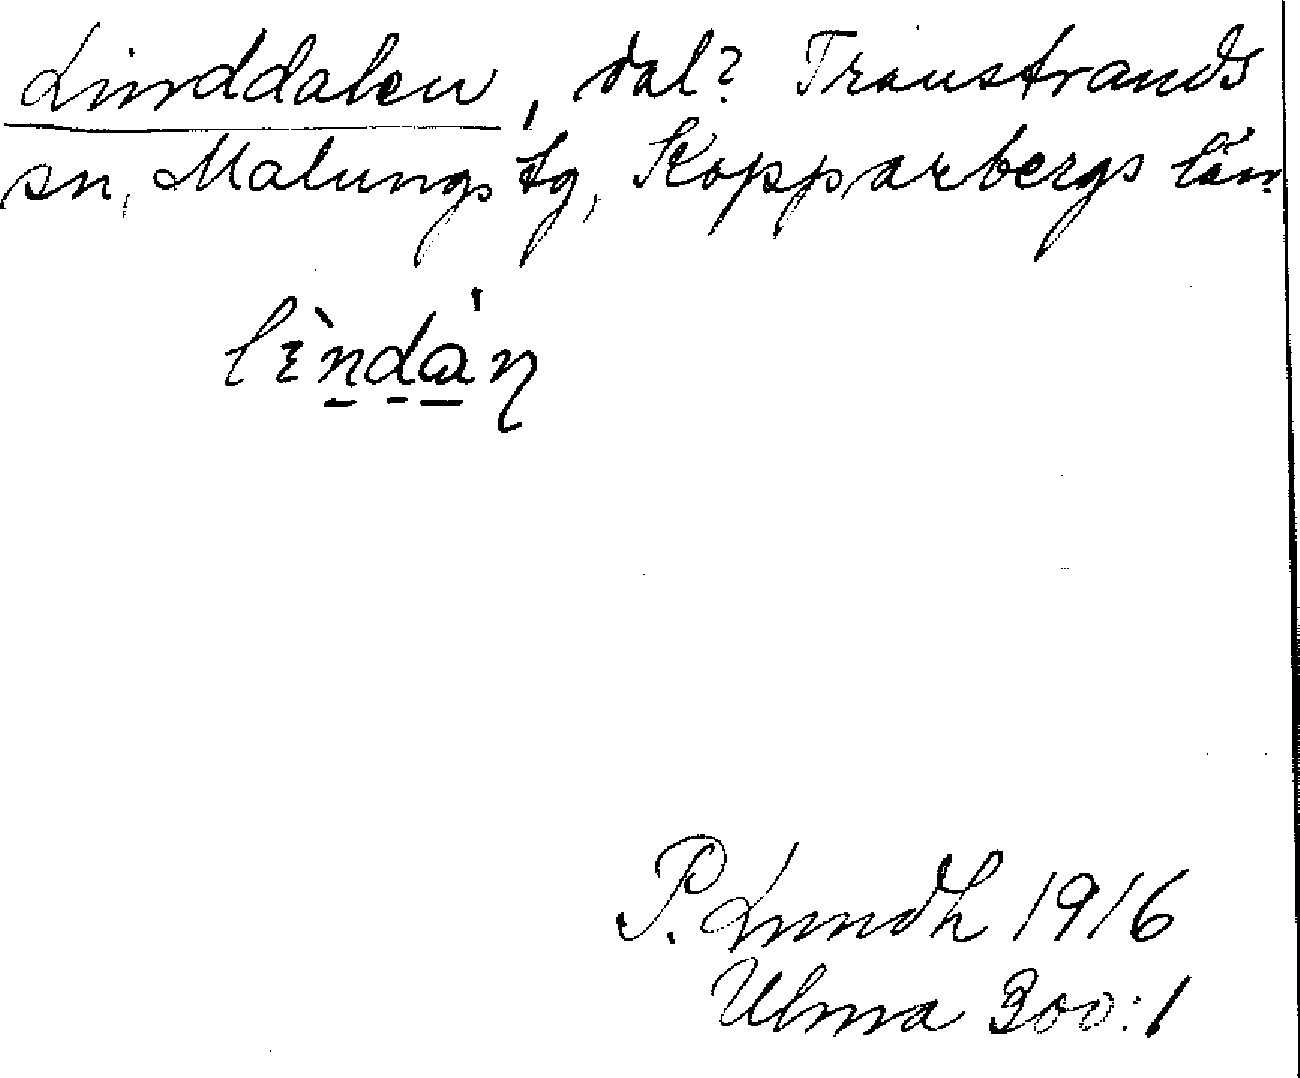 Linddalen, dal? Transtrands
sn, Malungs tg, Kopparbergs län
P. Lundh 1916
Ulma 300:1